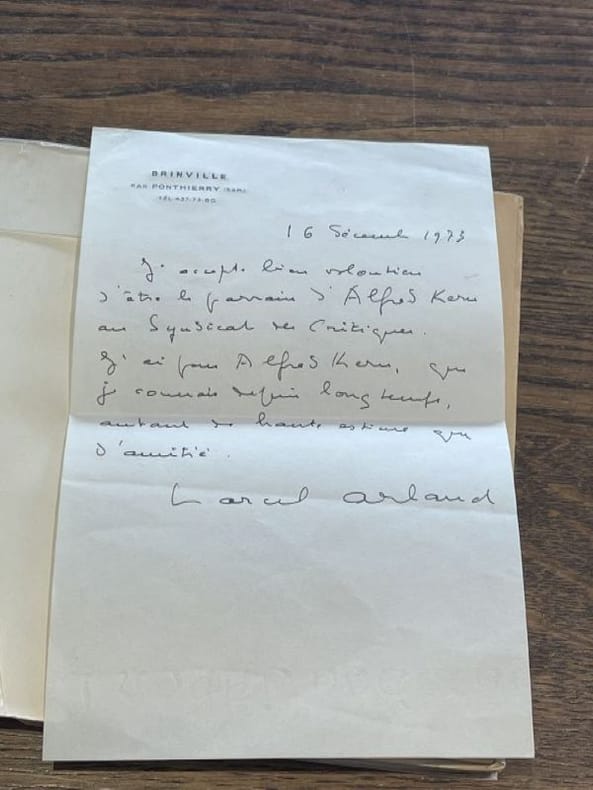 BRINVILLE
PAR PONTHIERRY (S&M)
TÉL. 437-73-60
16 Décembre 1973
J'accepte bien volontiers
d'être le parrain d'Alfred Kern
au Syndicat des Critiques.
J'ai pour Alfred Kern, que
je connais depuis longtemps,
autant de haute estime que
d'amitié.
Marcel Arland